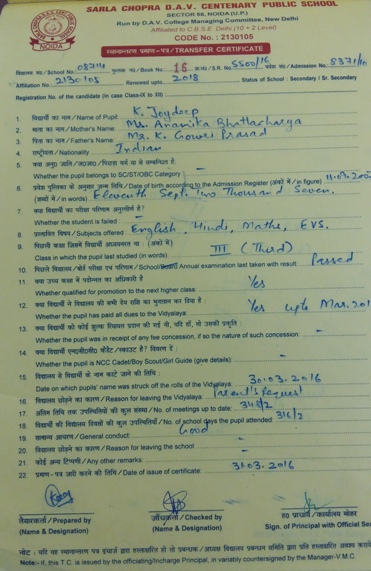 SARLA CHOPRA D.A.V. CENTENARY PUBLIC SCHOOL
SECTOR 56, NOIDA (U.P.)
Run by D.A.V. College Managing Committee, New Delhi
Affiliated to C.B.S.E. Delhi (10 + 2 Level)
CODE No. : 2130105
स्थानान्तरण प्रमाण - पत्र / TRANSFER CERTIFICATE
विद्यालय सं०/School No. 08714 पुस्तक सं०/Book No. 16 क्र०सं०/S.R. No. 5500/16 प्रवेश सं०/Admission No.
Affiliation No. 2130105 Renewed upto 2018 Status of School : Secondary / Sr. Secondary
Registration No. of the candidate (in case Class-IX to XII)
1. विद्यार्थी का नाम / Name of Pupil K. Joydeep
2. माता का नाम / Mother's Name Ms. Anamika Bhattacharya
3. पिता का नाम / Father's Name Mr. K. Gowri Prasad
4. राष्ट्रीयता / Nationality Indian
5. क्या अनु० जाति/ज०जा०/पिछड़ा वर्ग से सम्बन्धित है
Whether the pupil belongs to SC/ST/OBC Category -
6. प्रवेश पुस्तिका के अनुसार जन्म तिथि / Date of birth according to the Admission Register (अंकों में / in figure)
(शब्दों में / in words) Eleventh Sept. Two Thousand Seven.
7. क्या विद्यार्थी का परीक्षा परिणाम अनुत्तीर्ण है?
Whether the student is failed -
8. प्रस्तावित विषय / Subjects offered English, Hindi, Maths, EVS.
9. पिछली कक्षा जिसमें विद्यार्थी अध्ययनरत था : (अंकों में)
Class in which the pupil last studied (in words) III (Third)
10. पिछले विद्यालय/बोर्ड परीक्षा एवं परिणाम / School/Board Annual examination last taken with result Passed
11. क्या उच्च कक्षा में पदोन्नति का अधिकारी है
Whether qualified for promotion to the next higher class Yes
12. क्या विद्यार्थी ने विद्यालय की सभी देय राशि का भुगतान कर दिया है :
Whether the pupil has paid all dues to the Vidyalaya Yes upto Mar. 201
13. क्या विद्यार्थी को कोई शुल्क रियायत प्रदान की गई थी, यदि हाँ, तो उसकी प्रकृति :
Whether the pupil was in receipt of any fee concession, if so the nature of such concession: -
14. क्या विद्यार्थी एन०सी०सी० कैडेट/स्काउट है? विवरण दें :
Whether pupil is NCC Cadet/Boy Scout/Girl Guide (give details) -
15. विद्यालय से विद्यार्थी के नाम काटे जाने की तिथि :
Date on which pupils' name was struck off the rolls of the Vidyalaya 30.03.2016
16. विद्यालय छोड़ने का कारण / Reason for leaving the Vidyalaya Parent's Request
17. अंतिम तिथि तक उपस्थितियों की कुल संख्या / No. of meetings up to date
18. विद्यार्थी की विद्यालय दिवसों की कुल उपस्थितियाँ / No. of school days the pupil attended 316/2
19. सामान्य आचरण / General conduct Good
20. विद्यालय छोड़ने का कारण / Reason for leaving the school -
21. कोई अन्य टिप्पणी / Any other remarks -
22. प्रमाण - पत्र जारी करने की तिथि / Date of issue of certificate 31.03.2016
तैयारकर्ता / Prepared by जाँचकर्ता / Checked by ह० प्राचार्य/कार्यालय मोहर
(Name & Designation) (Name & Designation) Sign. of Principal with Official Sea
Note:- If, this T.C. is issued by the officiating/Incharge Principal, in variably countersigned by the Manager-V.M.C.